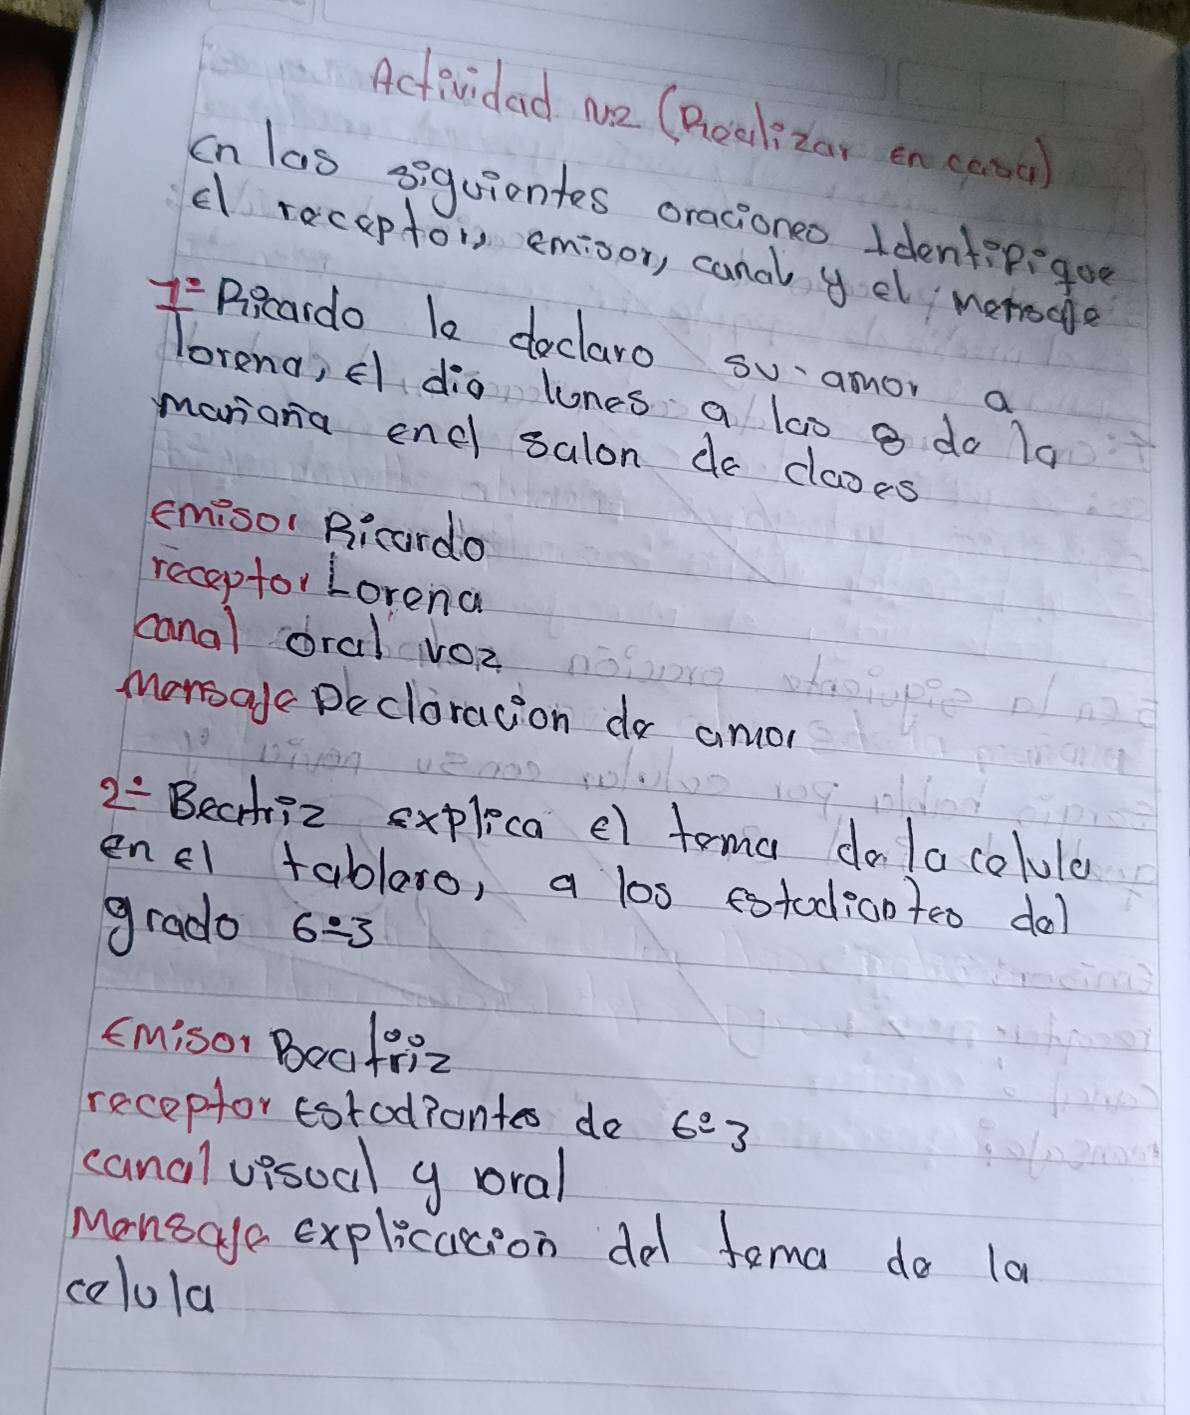 Actividad N:2 (Realizar en casa)
en las siguientes oraciones Identifique
el receptor, emisor, canal y el mensaje
1= Ricardo le declaro su amor a
lorena, el dia lunes a las 8 de la
mañana enel salon de clases
emisor Ricardo
receptor Lorena
canal oral voz
Mensaje Declaracion de amor
2÷ Beatriz explica el tema de la celula
en el tablero, a los estudiantes del
grado 6÷3
Emisor Beatriz
receptor estudiantes de 6=3
canal visual y oral
Mensaje explicacion del tema de la
celula